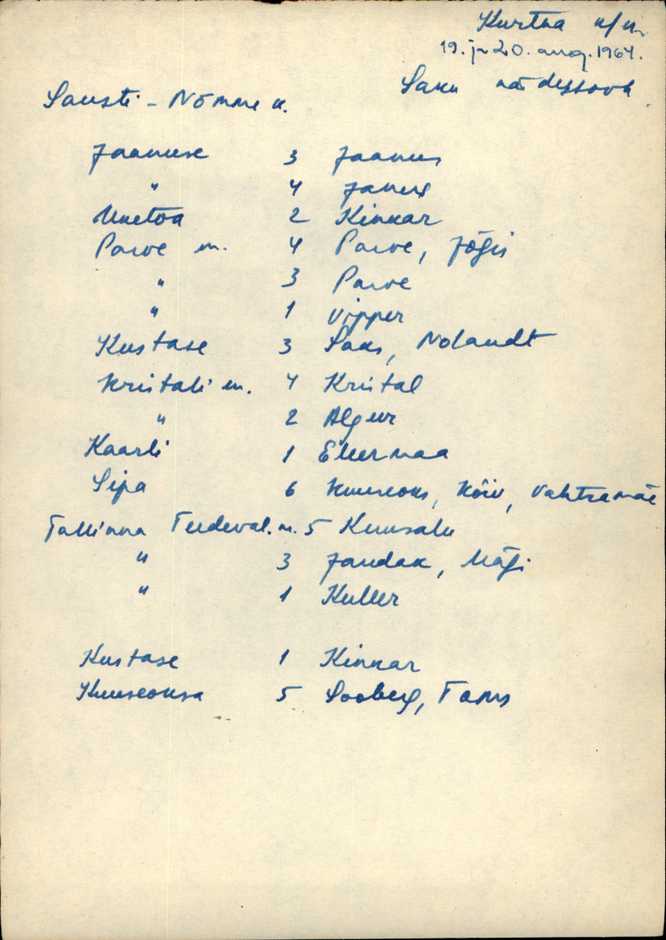 Kurtna k/n.
19. ja 20. aug. 1964.
Saku
Sausti - Nõmme k.
Jaanuse 3 Jaanus
" 4
Uuetoa 2 Kinkar
Parve m. 4 Parve, Jõgis
" 3 Parve
" 1 Vipper
Kustase 3 Saks, Nolandt
Kristali m. 4 Kristal
" 2
Kaarli 1 Ellermaa
Sipa 6 Kuuseoks, Kõiv, Vahtramäe
Tallinna Teedeval. m. 5 Kuusalu
" 3 Jandak, Mägi
" 1 Kuller
Kustase 1 Kinkar
Kuuseoksa 5 Sooberg,